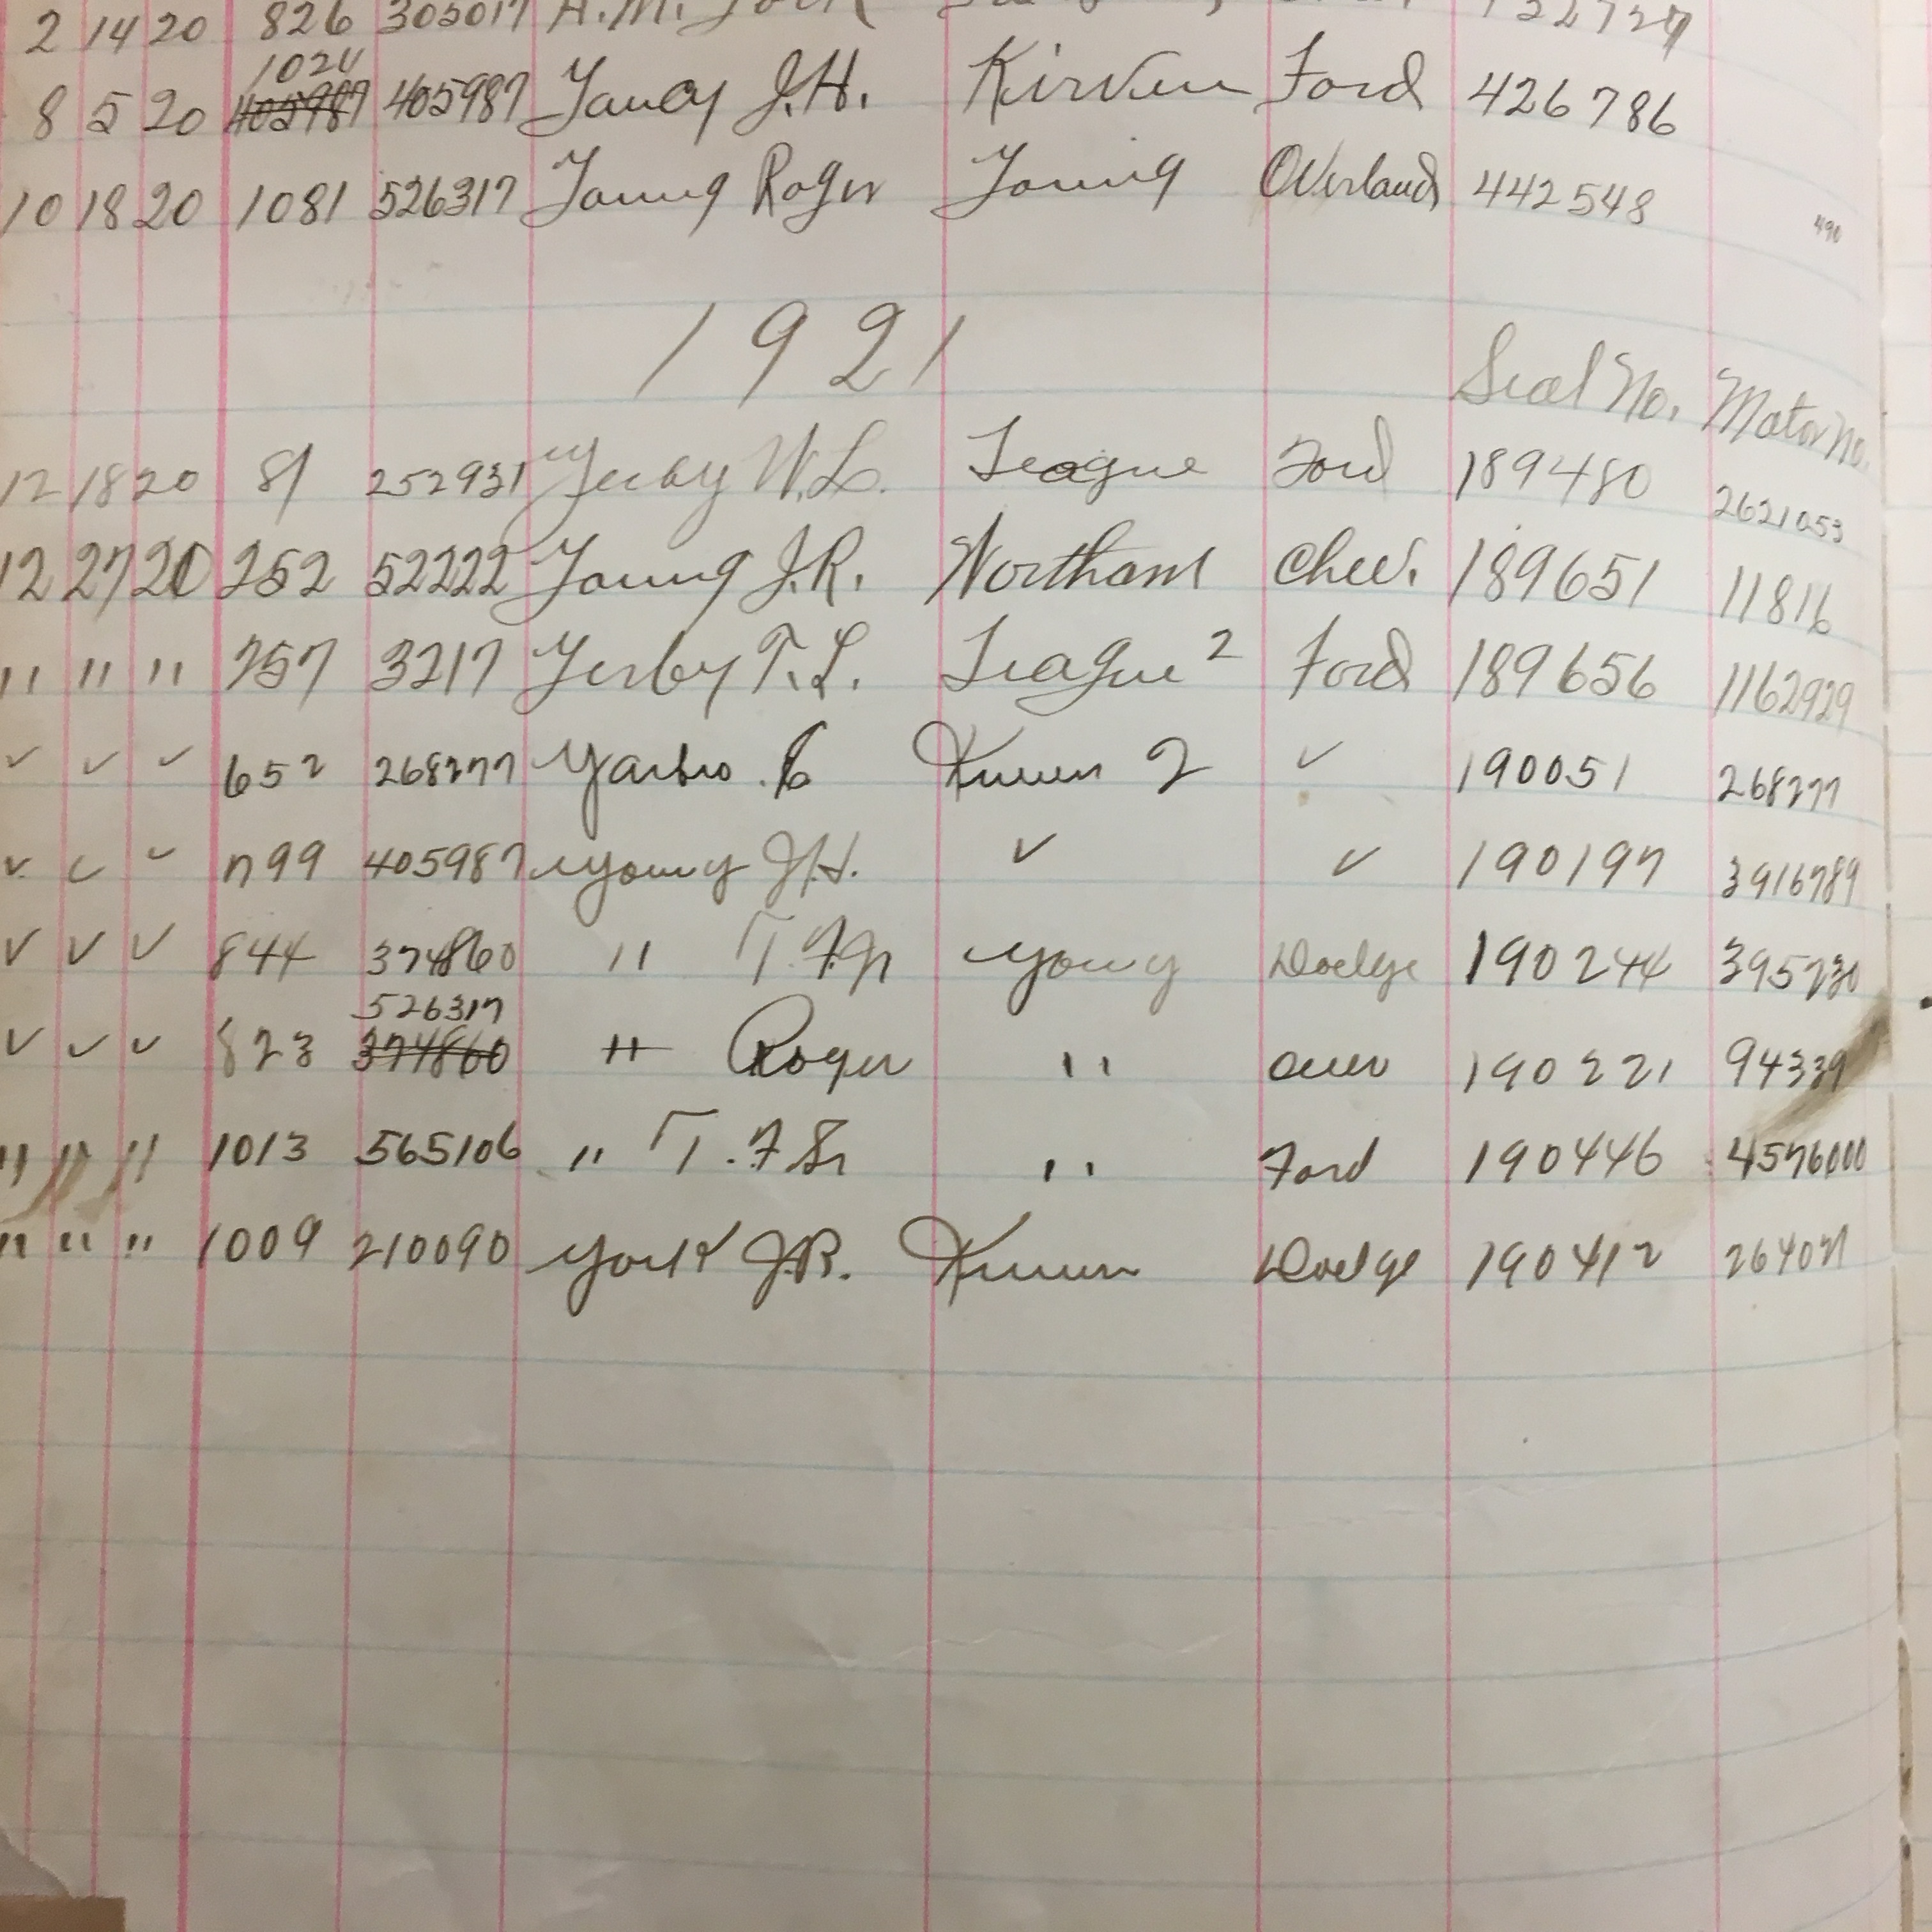 2 14 20 826 305017 A.M. York 122727
8 5 20 1024 405987 405987 Yancy J.H. Kirven Ford 426786
10 18 20 1081 526317 Young Roger Young Overland 442548
490
1921
Seal No. Motor No.
12 18 20 81 252931 Yerby W.L. Teague Ford 189480 2621053
12 27 20 252 52222 Young J.R. Northam Chev. 189651 11816
" " " 257 3217 Yerby T.L. Teague 2 Ford 189656 1162929
✓ ✓ ✓ 652 268277 Yarbro C Kirven 2 ✓ 190051 268277
✓ ✓ ✓ 799 405987 Young J.H. ✓ ✓ 190197 3916789
✓ ✓ ✓ 844 374860 " T.F. Jr Young Dodge 190244 395230
526317
✓ ✓ ✓ 823 374860 " Roger " Over 190221 94339
" " " 1013 565106 " T.F. Sr " Ford 190446 4576000
" " " 1009 210090 York J.B. Kirven Dodge 190412